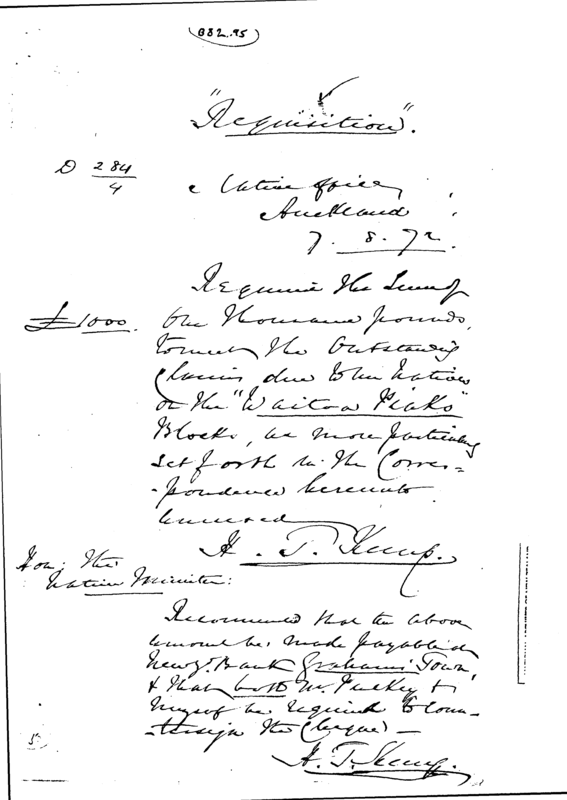 G82.95
"Requisition".
D 284/4
Native Office,
Auckland
7. 8. 72.
Require the Sum of
£1000. One thousand pounds,
to meet the Outstanding
Claims due to the Natives
on the "Waitoa Piako"
Blocks, as more particularly
set forth in the Corres-
-pondence hereunto
annexed
H. T. Kemp.
Hon: The
Native Minister:
Recommend that the above
amount be made payable at
New Z. Bank Grahams' Town,
& that both Mr. Puckey &
Myself be required to Coun-
-tersign the Cheque—
H. T. Kemp.